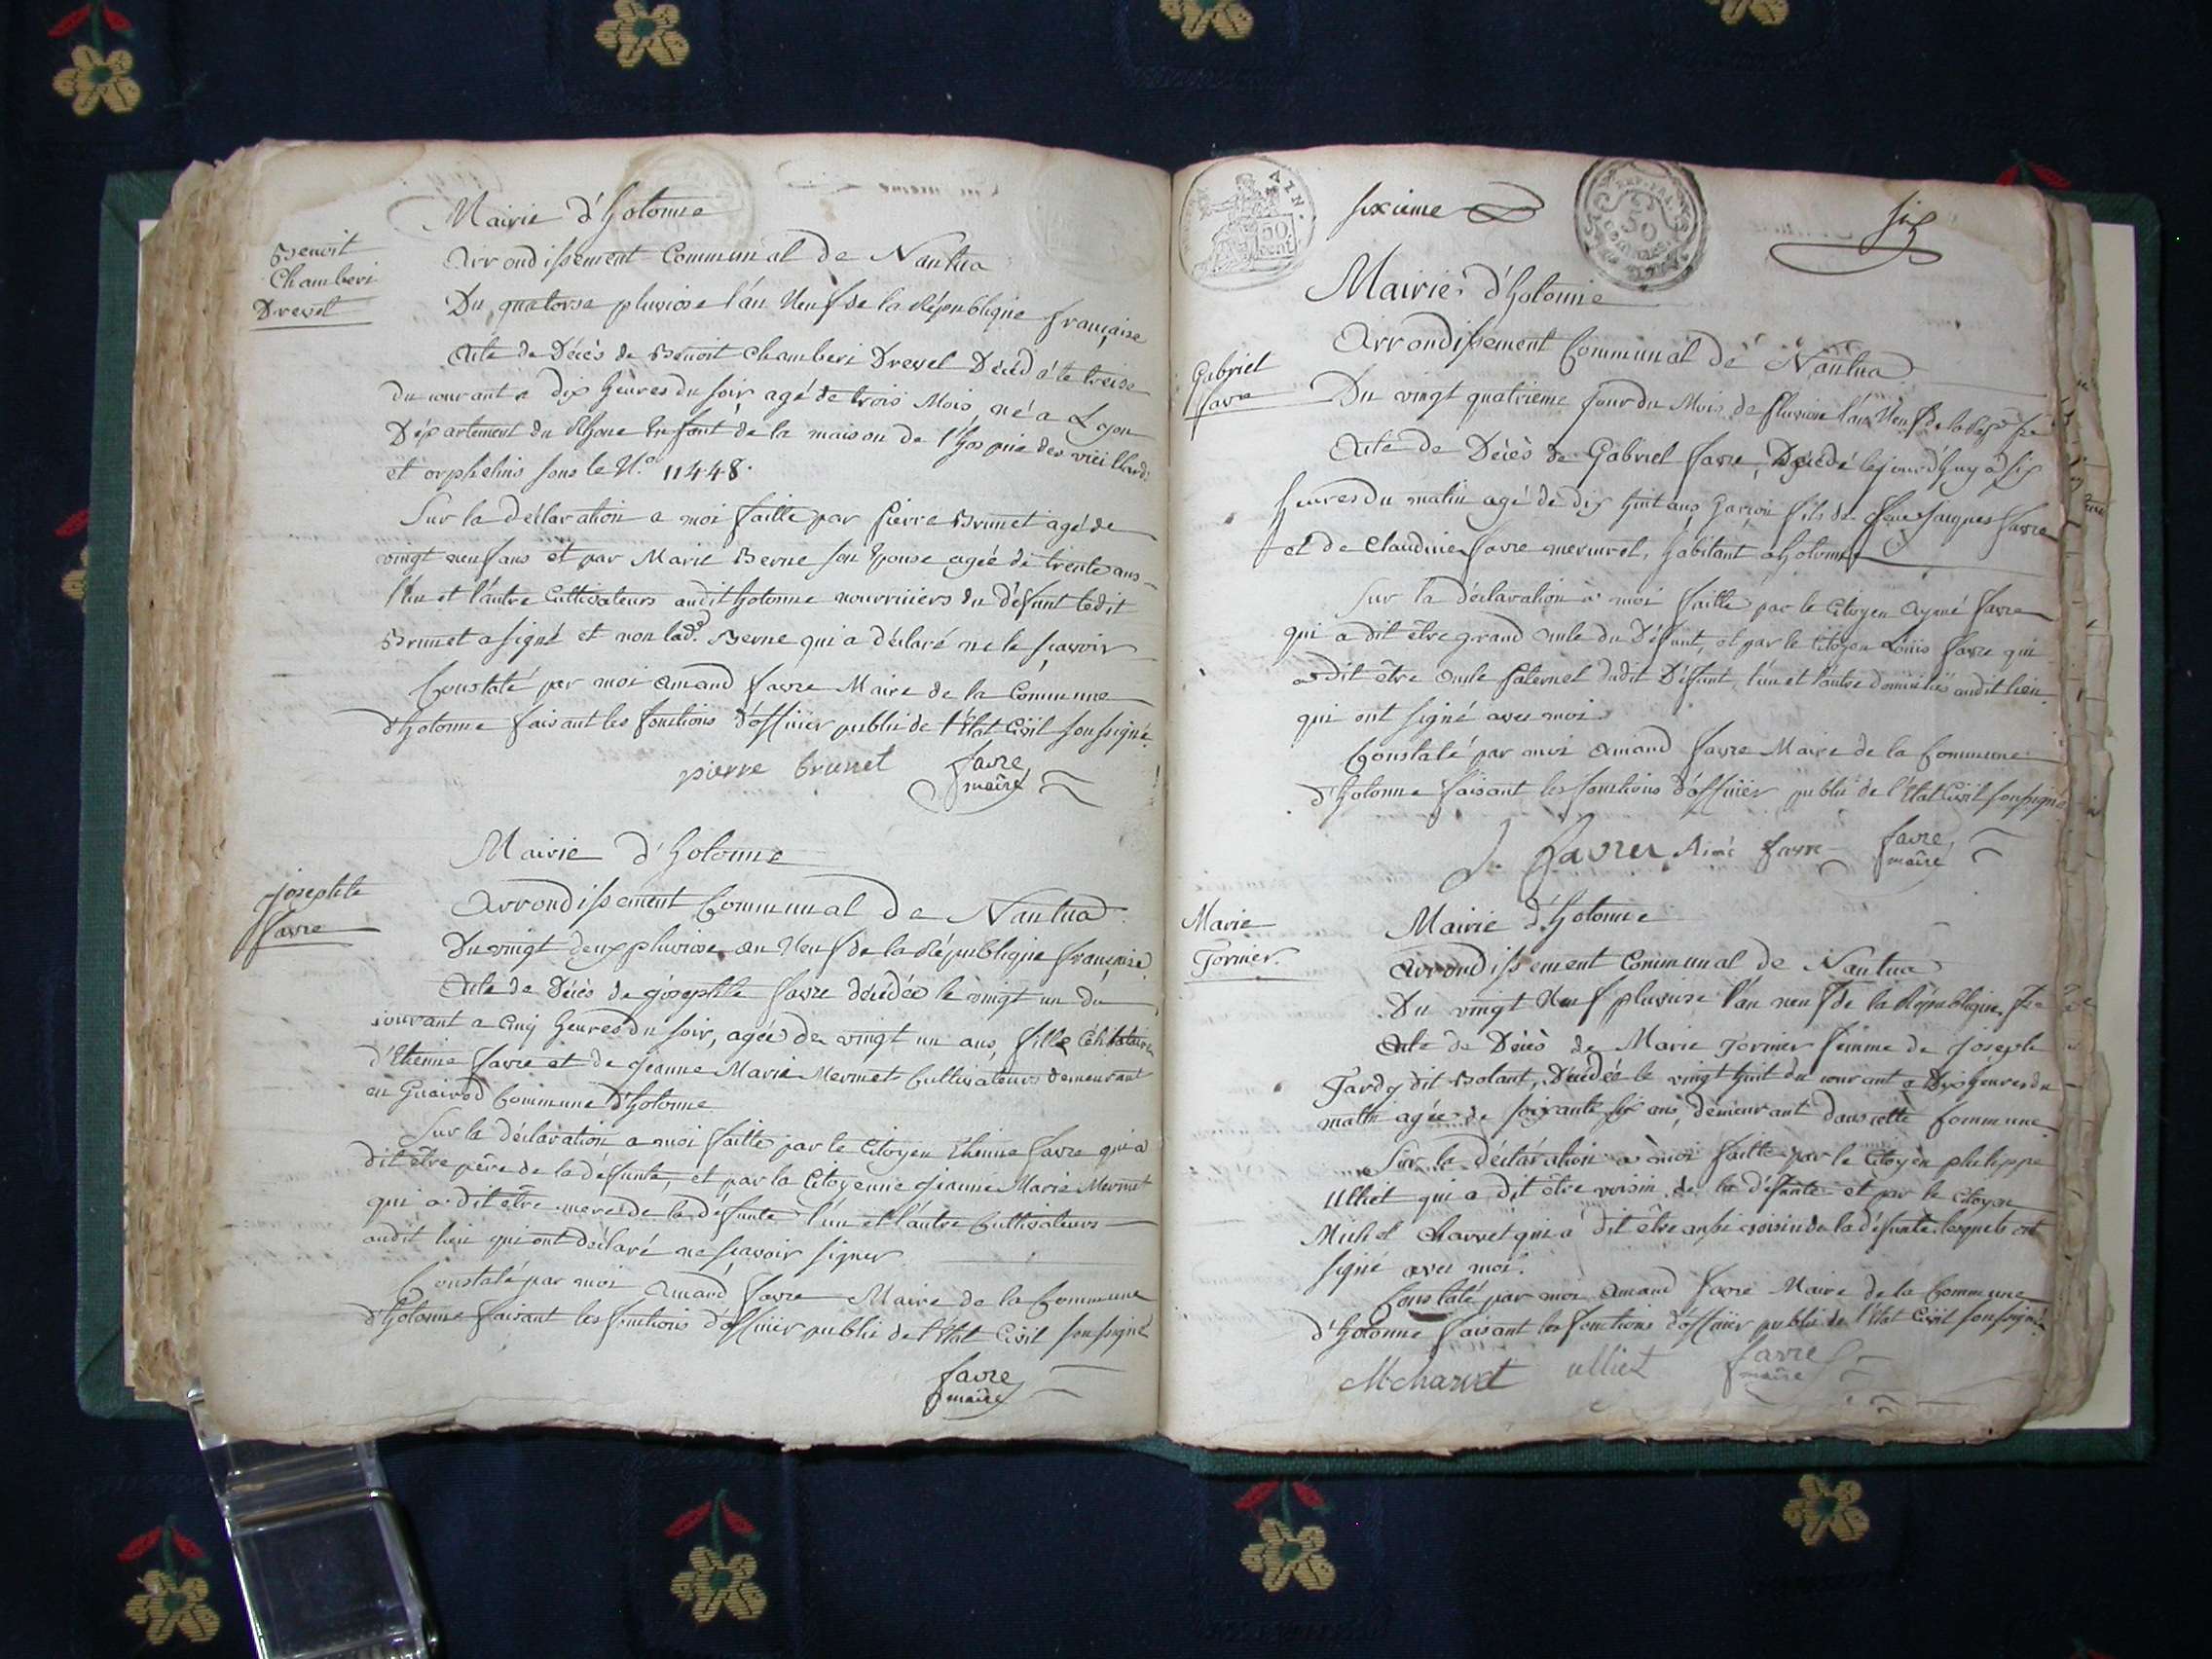 Mairie d'hotonne
Benoit
Chamberi
Drevet
Arrondissement Communal de Nantua
Du quatorse pluviose l'an Neuf de la République française
Acte de Décès de Benoit Chamberi Drevet Décédé le treise
du courant a dix heures du soir agé de trois Mois, né a Lyon
Département du Rhone Enfant de la maison de l'hospice des vieillards
et orphelins sous le N.o 11448.
Sur la déclaration a moi faitte par pierre Brunet agé de
vingt neuf ans et par Marie Berne son Epouse agée de trente ans
l'un et l'autre Cultivateurs audit hotonne nourriciers du défunt ledit
Brunet a signé et non lad.e Berne qui a déclaré ne le sçavoir
Constaté par moi Amand favre Maire de la Commune
d'hotonne faisant les fonctions d'officier public de l'Etat Civil soussigné.
pierre brunet favre
maire
Mairie d'hotonne
josephte
favre
Arrondissement Communal de Nantua
Du vingt deux pluviose an Neuf de la République française
Acte de Décès de josephte favre décédée le vingt un du
courant a cinq heures du soir, agée de vingt un ans, fille Célibataire
d'Etienne favre et de jeanne Marie Mermet Cultivateurs demeurant
en Commune d'hotonne
Sur la déclaration a moi faitte par le Citoyen Etienne favre qui a
dit être père de la défunte, et par la Citoyenne jeanne Marie Mermet
qui a dit être mere de la défunte l'un et l'autre Cultivateurs
audit lieu qui ont déclaré ne sçavoir signer
Constaté par moi Amand favre Maire de la Commune
d'hotonne faisant les fonctions d'officier public de l'Etat Civil soussigné
favre
maire
AIN.
50
cent.
sixieme
REP. FRA.
50
CENTIMES
six
Mairie d'hotonne
Arrondissement Communal de Nantua
Gabriel
favre
Du vingt quatrieme jour du Mois de pluviose l'an Neuf de la Rep.e fse
Acte de Décès de Gabriel favre, Décédé lejourd'huy a six
heures du matin agé de dix huit ans, Garçon fils de feu Jacques favre
et de Claudine favre mermet, habitant a hotonne
Sur la déclaration a moi faitte par le Citoyen Aymé favre
qui a dit être grand oncle du Défunt, et par le Citoyen Louis favre qui
a dit être oncle paternel dudit Défunt, l'un et l'autre domiciliés audit lieu
qui ont signé avec moi
Constaté par moi Amand favre Maire de la Commune
d'hotonne faisant les fonctions d'officier public de l'Etat Civil soussigné
favre Aimé favre favre
maire
Marie
Tornier.
Mairie d'hotonne
Arrondissement Communal de Nantua
Du vingt Neuf pluviose l'an neuf de la République fse
Acte de Décès de Marie Tornier femme de joseph
Tardy dit Bolant, Décédée le vingt huit du courant a Dix heures du
matin agée de soixante six ans, demeurant dans cette Commune
Sur la déclaration a moi faitte par le Citoyen philippe
Ulliet qui a dit être voisin de la défunte et par le Citoyen
Michel Charvet qui a dit être aussi voisin de la défunte lesquels ont
signé avec moi.
Constaté par moi Amand favre Maire de la Commune
d'hotonne faisant les fonctions d'officier public de l'Etat Civil soussigné
M charvet ulliet favre
maire